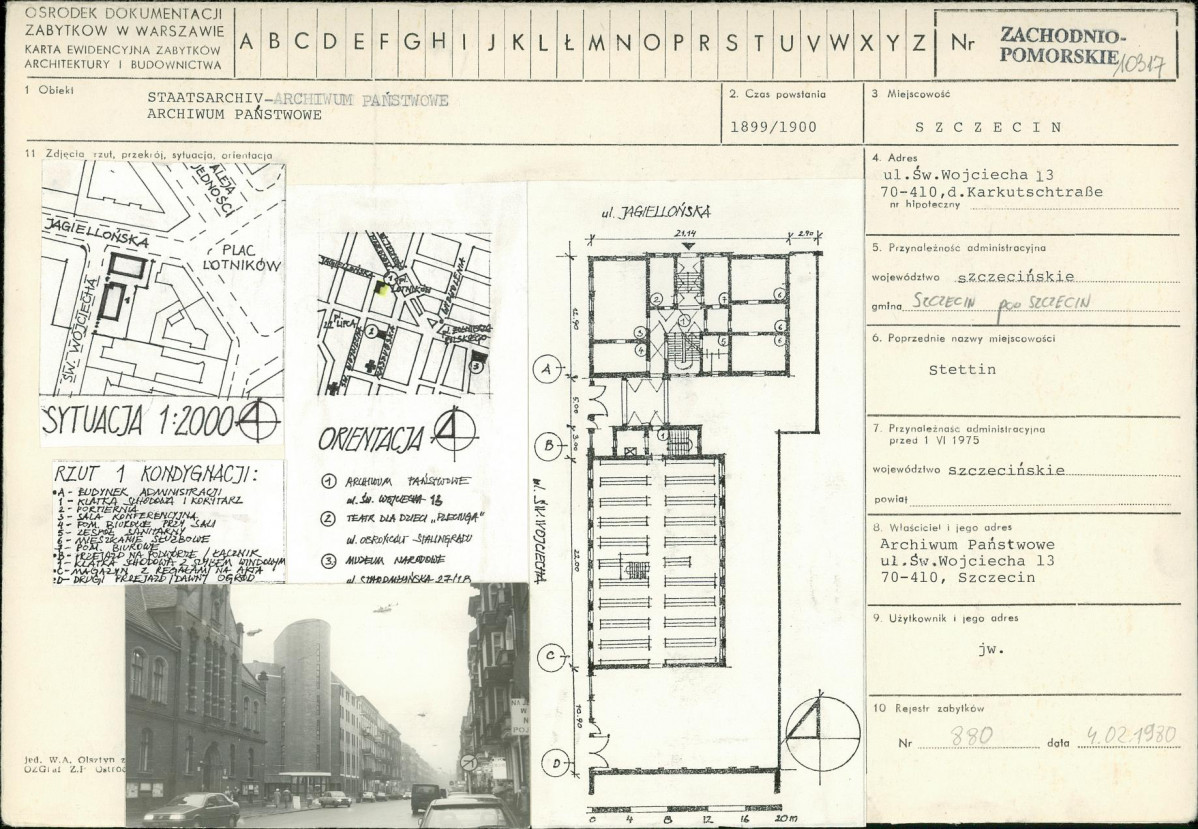 OŚRODEK DOKUMENTACJI
ZABYTKÓW W WARSZAWIE
KARTA EWIDENCYJNA ZABYTKÓW
ARCHITEKTURY I BUDOWNICTWA
A B C D E F G H I J K L Ł M N O P R S T U V W X Y Z
Nr
ZACHODNIO-
POMORSKIE
10317
1 Obiekt
STAATSARCHIV-ARCHIWUM PAŃSTWOWE
ARCHIWUM PAŃSTWOWE
2. Czas powstania
1899/1900
3 Miejscowość
SZCZECIN
11 Zdjęcia rzut, przekrój, sytuacja, orientacja
ALEJA
JEDNOŚCI
JAGIELLOŃSKA
PLAC
LOTNIKÓW
ŚW. WOJCIECHA
SYTUACJA 1:2000
JAGIELLOŃSKA
PL.
LOTNIKÓW
WYZWOLENIA
22 LIPCA
1
2
3
ORIENTACJA
1 ARCHIWUM PAŃSTWOWE
ul. ŚW. WOJCIECHA 13
2 TEATR DLA DZIECI "PLECIUGA"
ul. OBROŃCÓW STALINGRADU
3. MUZEUM NARODOWE
ul. STAROMŁYŃSKA 27/28
RZUT 1 KONDYGNACJI:
A - BUDYNEK ADMINISTRACJI
1 - KLATKA SCHODOWA I KORYTARZ
2 - PORTIERNIA
3 - SALA KONFERENCYJNA
4 - POM. BIUROWE PRZY SALI
5 - ZESPÓŁ SANITARNY
6 - MIESZKANIE SŁUŻBOWE
7 - POM. BIUROWE
B - PRZEJAZD NA PODWÓRZE / ŁĄCZNIK
1 - KLATKA SCHODOWA Z SZYBEM WINDOWYM
C - MAGAZYN Z REGAŁAMI NA AKTA
D - DRUGI PRZEJAZD / DAWNY OGRÓD
ul. JAGIELLOŃSKA
21,14
2.90
12.90
5.00
3.00
22.00
10.90
ul. ŚW. WOJCIECHA
A
B
C
D
1
2
3
4
5
6
6
6
7
1
0 4 8 12 16 20m
4. Adres
ul.Św.Wojciecha 13
70-410,d.Karkutschtraße
nr hipoteczny
5. Przynależność administracyjna
województwo szczecińskie
gmina SZCZECIN pow SZCZECIN
6. Poprzednie nazwy miejscowości
Stettin
7. Przynależność administracyjna
przed 1 VI 1975
województwo szczecińskie
powiat
8. Właściciel i jego adres
Archiwum Państwowe
ul.Św.Wojciecha 13
70-410, Szczecin
9. Użytkownik i jego adres
jw.
10 Rejestr zabytków
Nr 880 data 4.02.1980
jed. W.A. Olsztyn z
OZGraf Z.P Ostród